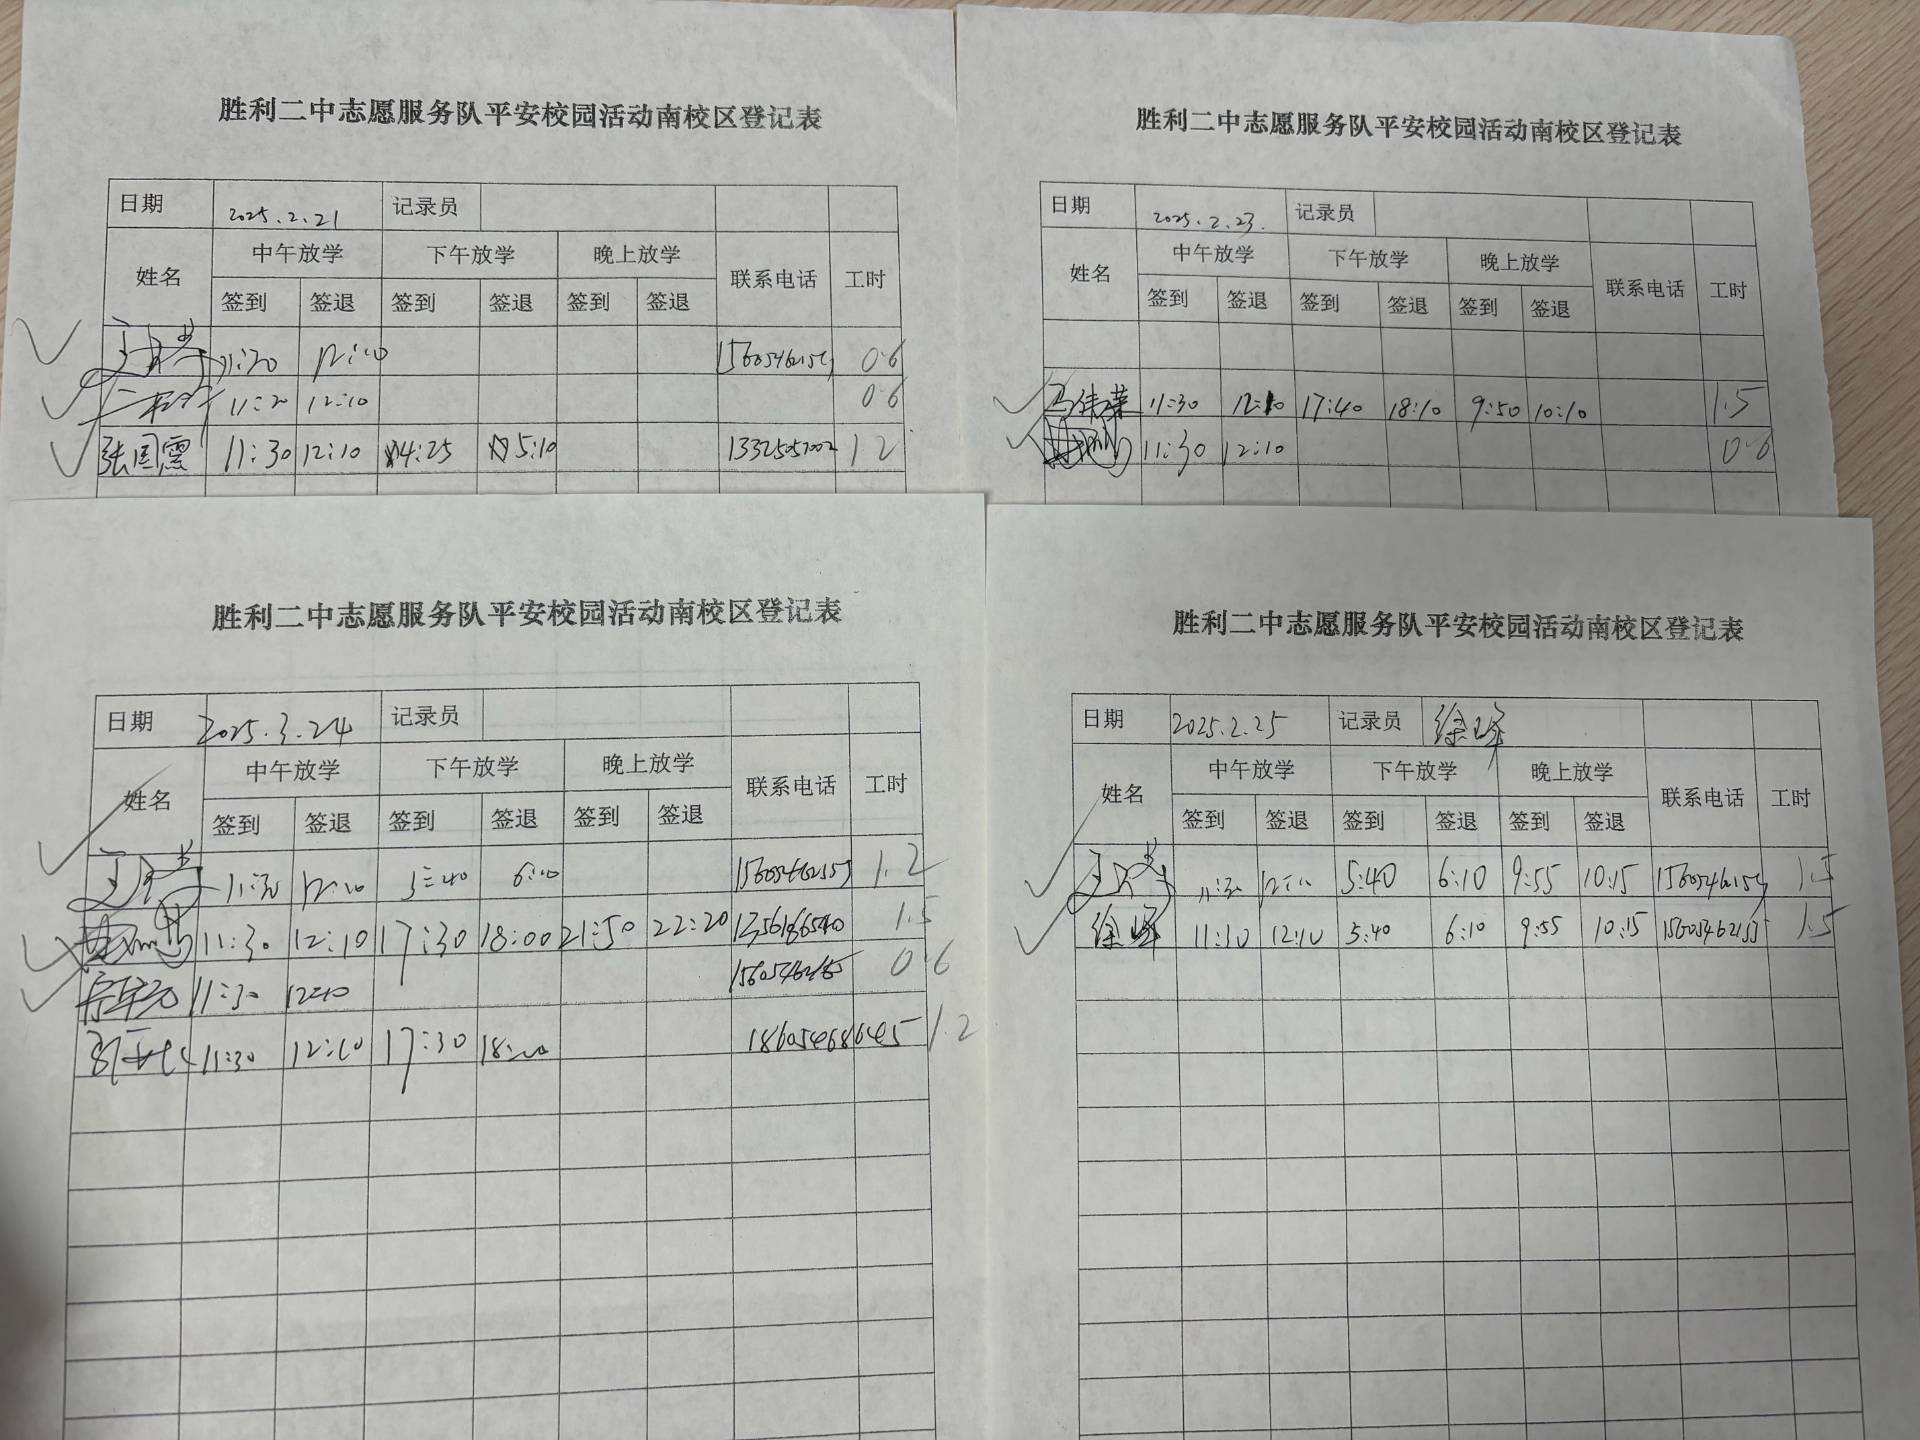 胜利二中志愿服务队平安校园活动南校区登记表
日期 2025.2.21 记录员
姓名 中午放学 下午放学 晚上放学 联系电话 工时
签到 签退 签到 签退 签到 签退
11:30 12:10 0.6
11:20 12:10 0.6
张国震 11:30 12:10 14:25 15:10 13325057002 1.2
胜利二中志愿服务队平安校园活动南校区登记表
日期 2025.2.23. 记录员
姓名 中午放学 下午放学 晚上放学 联系电话 工时
签到 签退 签到 签退 签到 签退
11:30 12:10 17:40 18:10 9:50 10:10 1.5
11:30 12:10 0.6
胜利二中志愿服务队平安校园活动南校区登记表
日期 2025.3.24 记录员
姓名 中午放学 下午放学 晚上放学 联系电话 工时
签到 签退 签到 签退 签到 签退
11:30 12:10 5:40 6:10 1.2
11:30 12:10 17:30 18:00 21:50 22:20 1.5
11:30 12:10 0.6
11:30 12:10 17:30 18:00 18605468645 1.2
胜利二中志愿服务队平安校园活动南校区登记表
日期 2025.2.25 记录员 徐峰
姓名 中午放学 下午放学 晚上放学 联系电话 工时
签到 签退 签到 签退 签到 签退
11:30 12:10 5:40 6:10 9:55 10:15 1.5
徐峰 11:30 12:10 5:40 6:10 9:55 10:15 15605462155 1.5